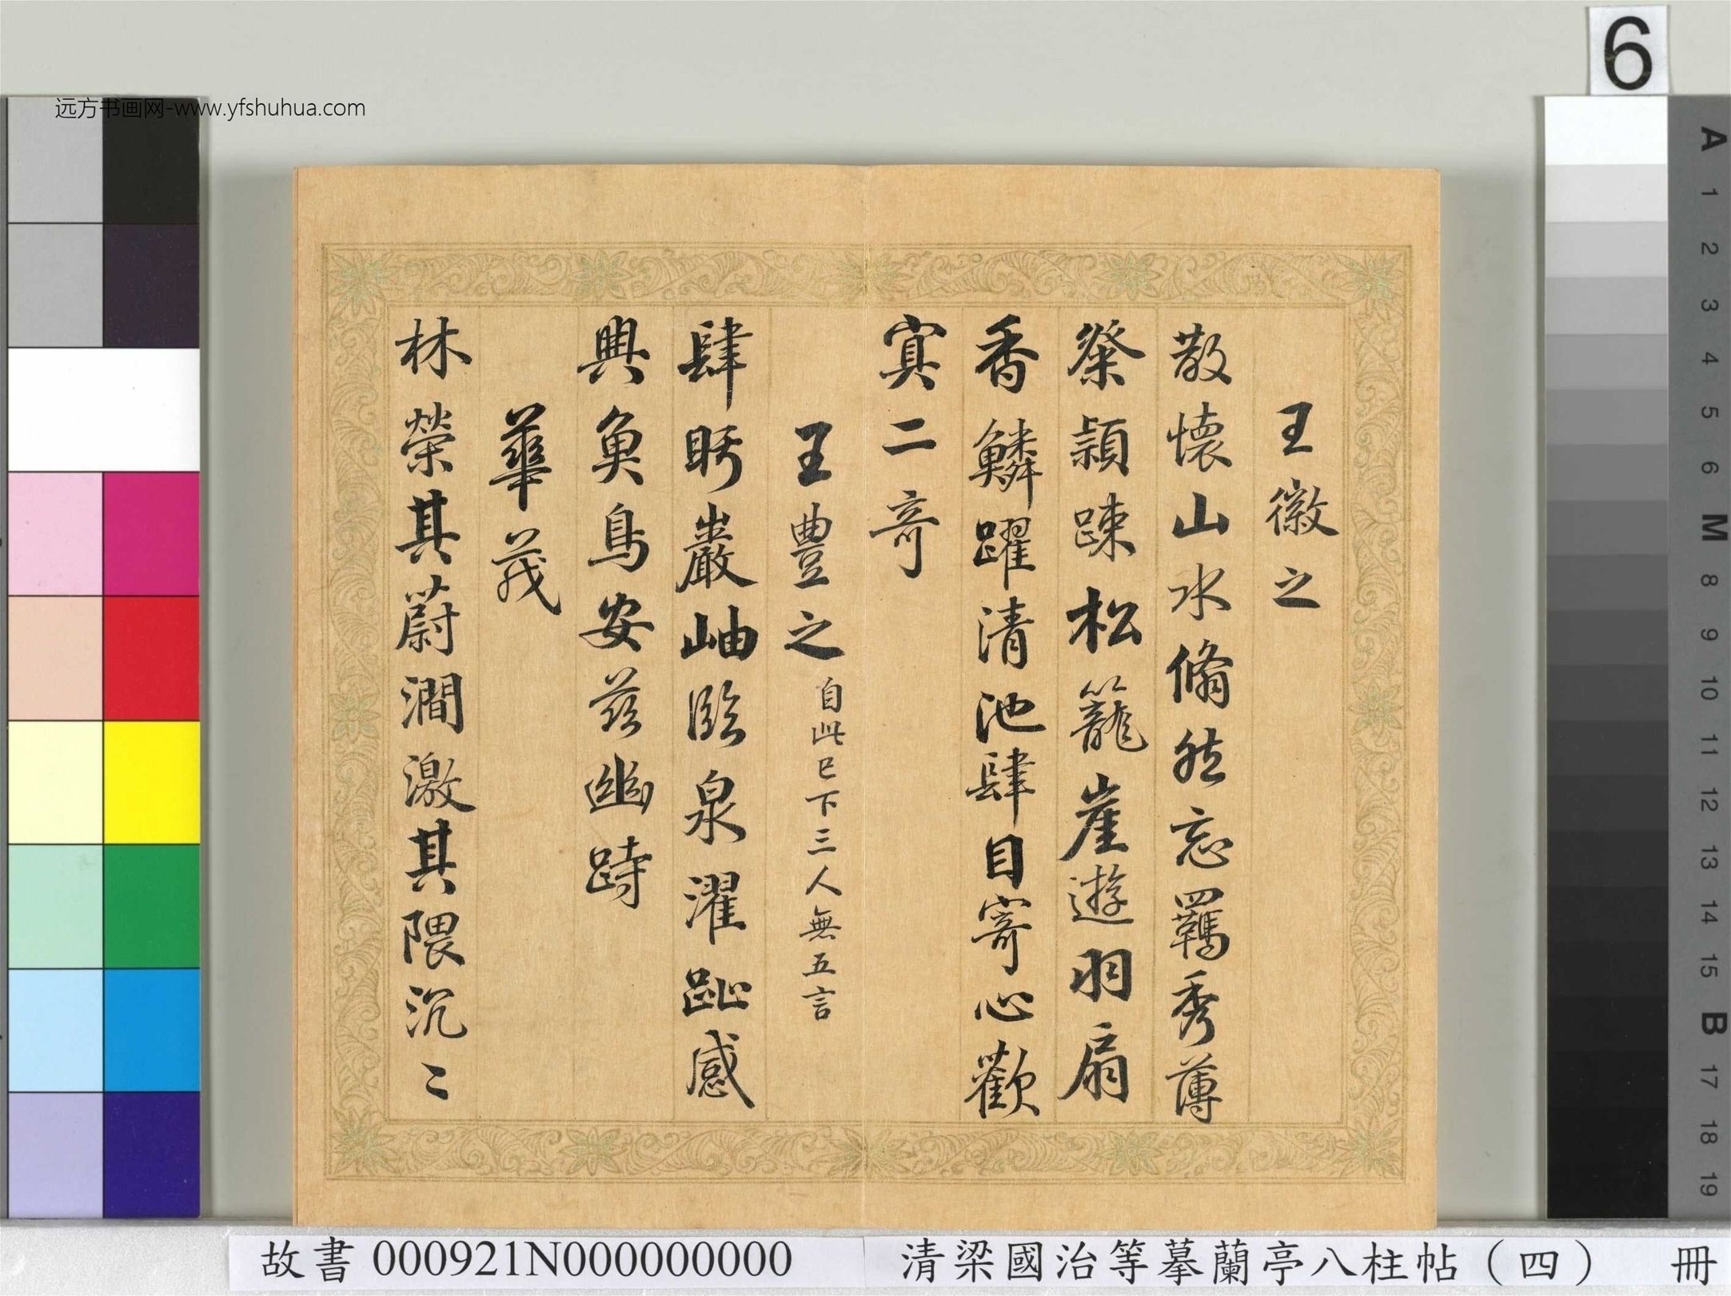 6
远方书画网-www.yfshuhua.com
王徽之
散懷山水翛然忘羈秀薄
粲穎踈松籠崖遊羽扇
香鱗躍清池肆目寄心歡
寘二奇
王豊之自此已下三人無五言
肆眄巖岫臨泉濯趾感
興魚鳥安茲幽跱
華茂
林榮其蔚澗激其隈汎〻
A
1
2
3
4
5
6
M
8
9
10
11
12
13
14
15
B
17
18
19
故書 000921N000000000
清梁國治等摹蘭亭八柱帖（四） 冊